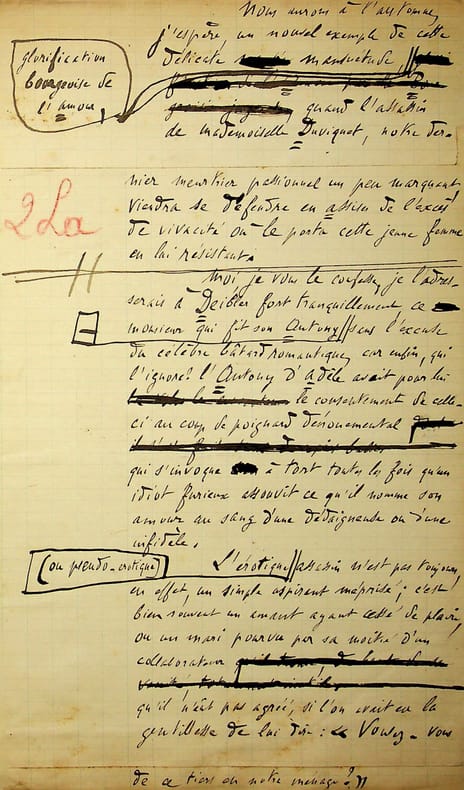 Nous aurons à l'automne,
j'espère, un nouvel exemple de cette
délicate mansuétude,
glorification
bourgeoise de
l'amour,
quand l'assassin
de mademoiselle Duviquet, notre der-
nier meurtrier passionnel un peu marquant
viendra se défendre en assises de l'excès
de vivacité où le porta cette jeune femme
en lui résistant.
2 La
Moi je vous le confesse, je l'adres-
serais à Deibler fort tranquillement ce
monsieur qui fit son Antony sans l'excuse
du célèbre bâtard romantique, car enfin, qui
l'ignore? l'Antony d'Adèle avait pour lui
le consentement de celle-
ci au coup de poignard dénouemental
qui s'invoque à tort toutes les fois qu'un
idiot furieux assouvit ce qu'il nomme son
amour au sang d'une dédaigneuse ou d'une
infidèle.
(ou pseudo-érotique)
L'érotique assassin n'est pas toujours,
en effet, un simple aspirant méprisé; c'est
bien souvent un amant ayant cessé de plaire,
ou un mari pourvu par sa moitié d'un
collaborateur
qu'il n'eût pas agréé, si l'on avait eu la
gentillesse de lui dire : « Voulez-vous
de ce tiers en notre ménage? »